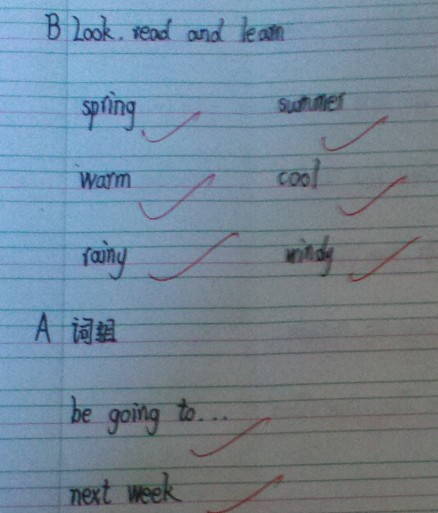 B Look. read and learn
spring summer
warm cool
rainy windy
A 词组
be going to...
next week